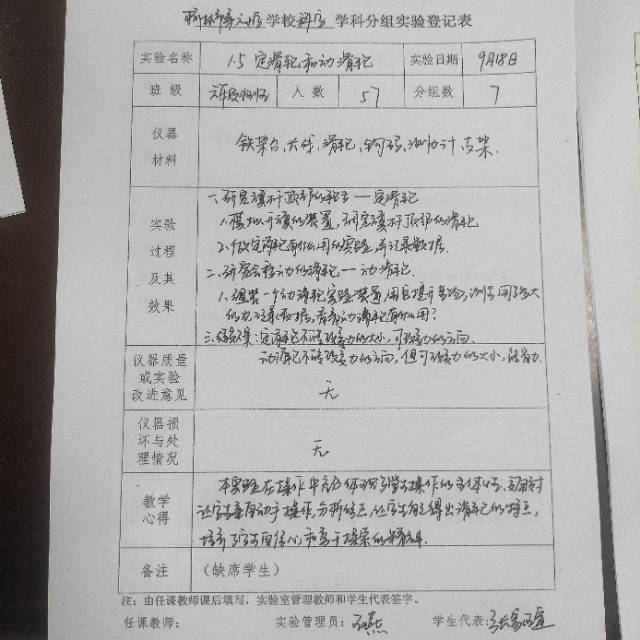 学校科学学科分组实验登记表
实验名称 1.5 定滑轮和动滑轮 实验日期 9月18日
班级 人数 57 分组数 7
仪器
材料
铁架台、大线、滑轮、钩码、测力计、支架.
实验
过程
及其
效果
一、研究旗杆顶部的滑轮——定滑轮
1、模拟升旗的装置,研究旗杆顶部的滑轮
2、做定滑轮有什么用的实验,并记录数据.
二、研究会移动的滑轮——动滑轮.
1、组装一个动滑轮实验装置,用
的力,记录数据,看看动滑轮有什么用?
定滑轮不能改变力的大小,可改变力的方向
动滑轮不能改变力的方向,但可改变力的大小,能省力.
仪器质量
或实验
改进意见
无
仪器损
坏与处
理情况
无
教学
心得
本实验在操作中充分体现了学生操作的主体性,
让学生亲自动手操作,分析,让学生自己得出滑轮的特点,
培养了学生自信心和
备注 (缺席学生)
注:由任课教师课后填写,实验室管理教师和学生代表签字。
任课教师: 实验管理员: 学生代表: